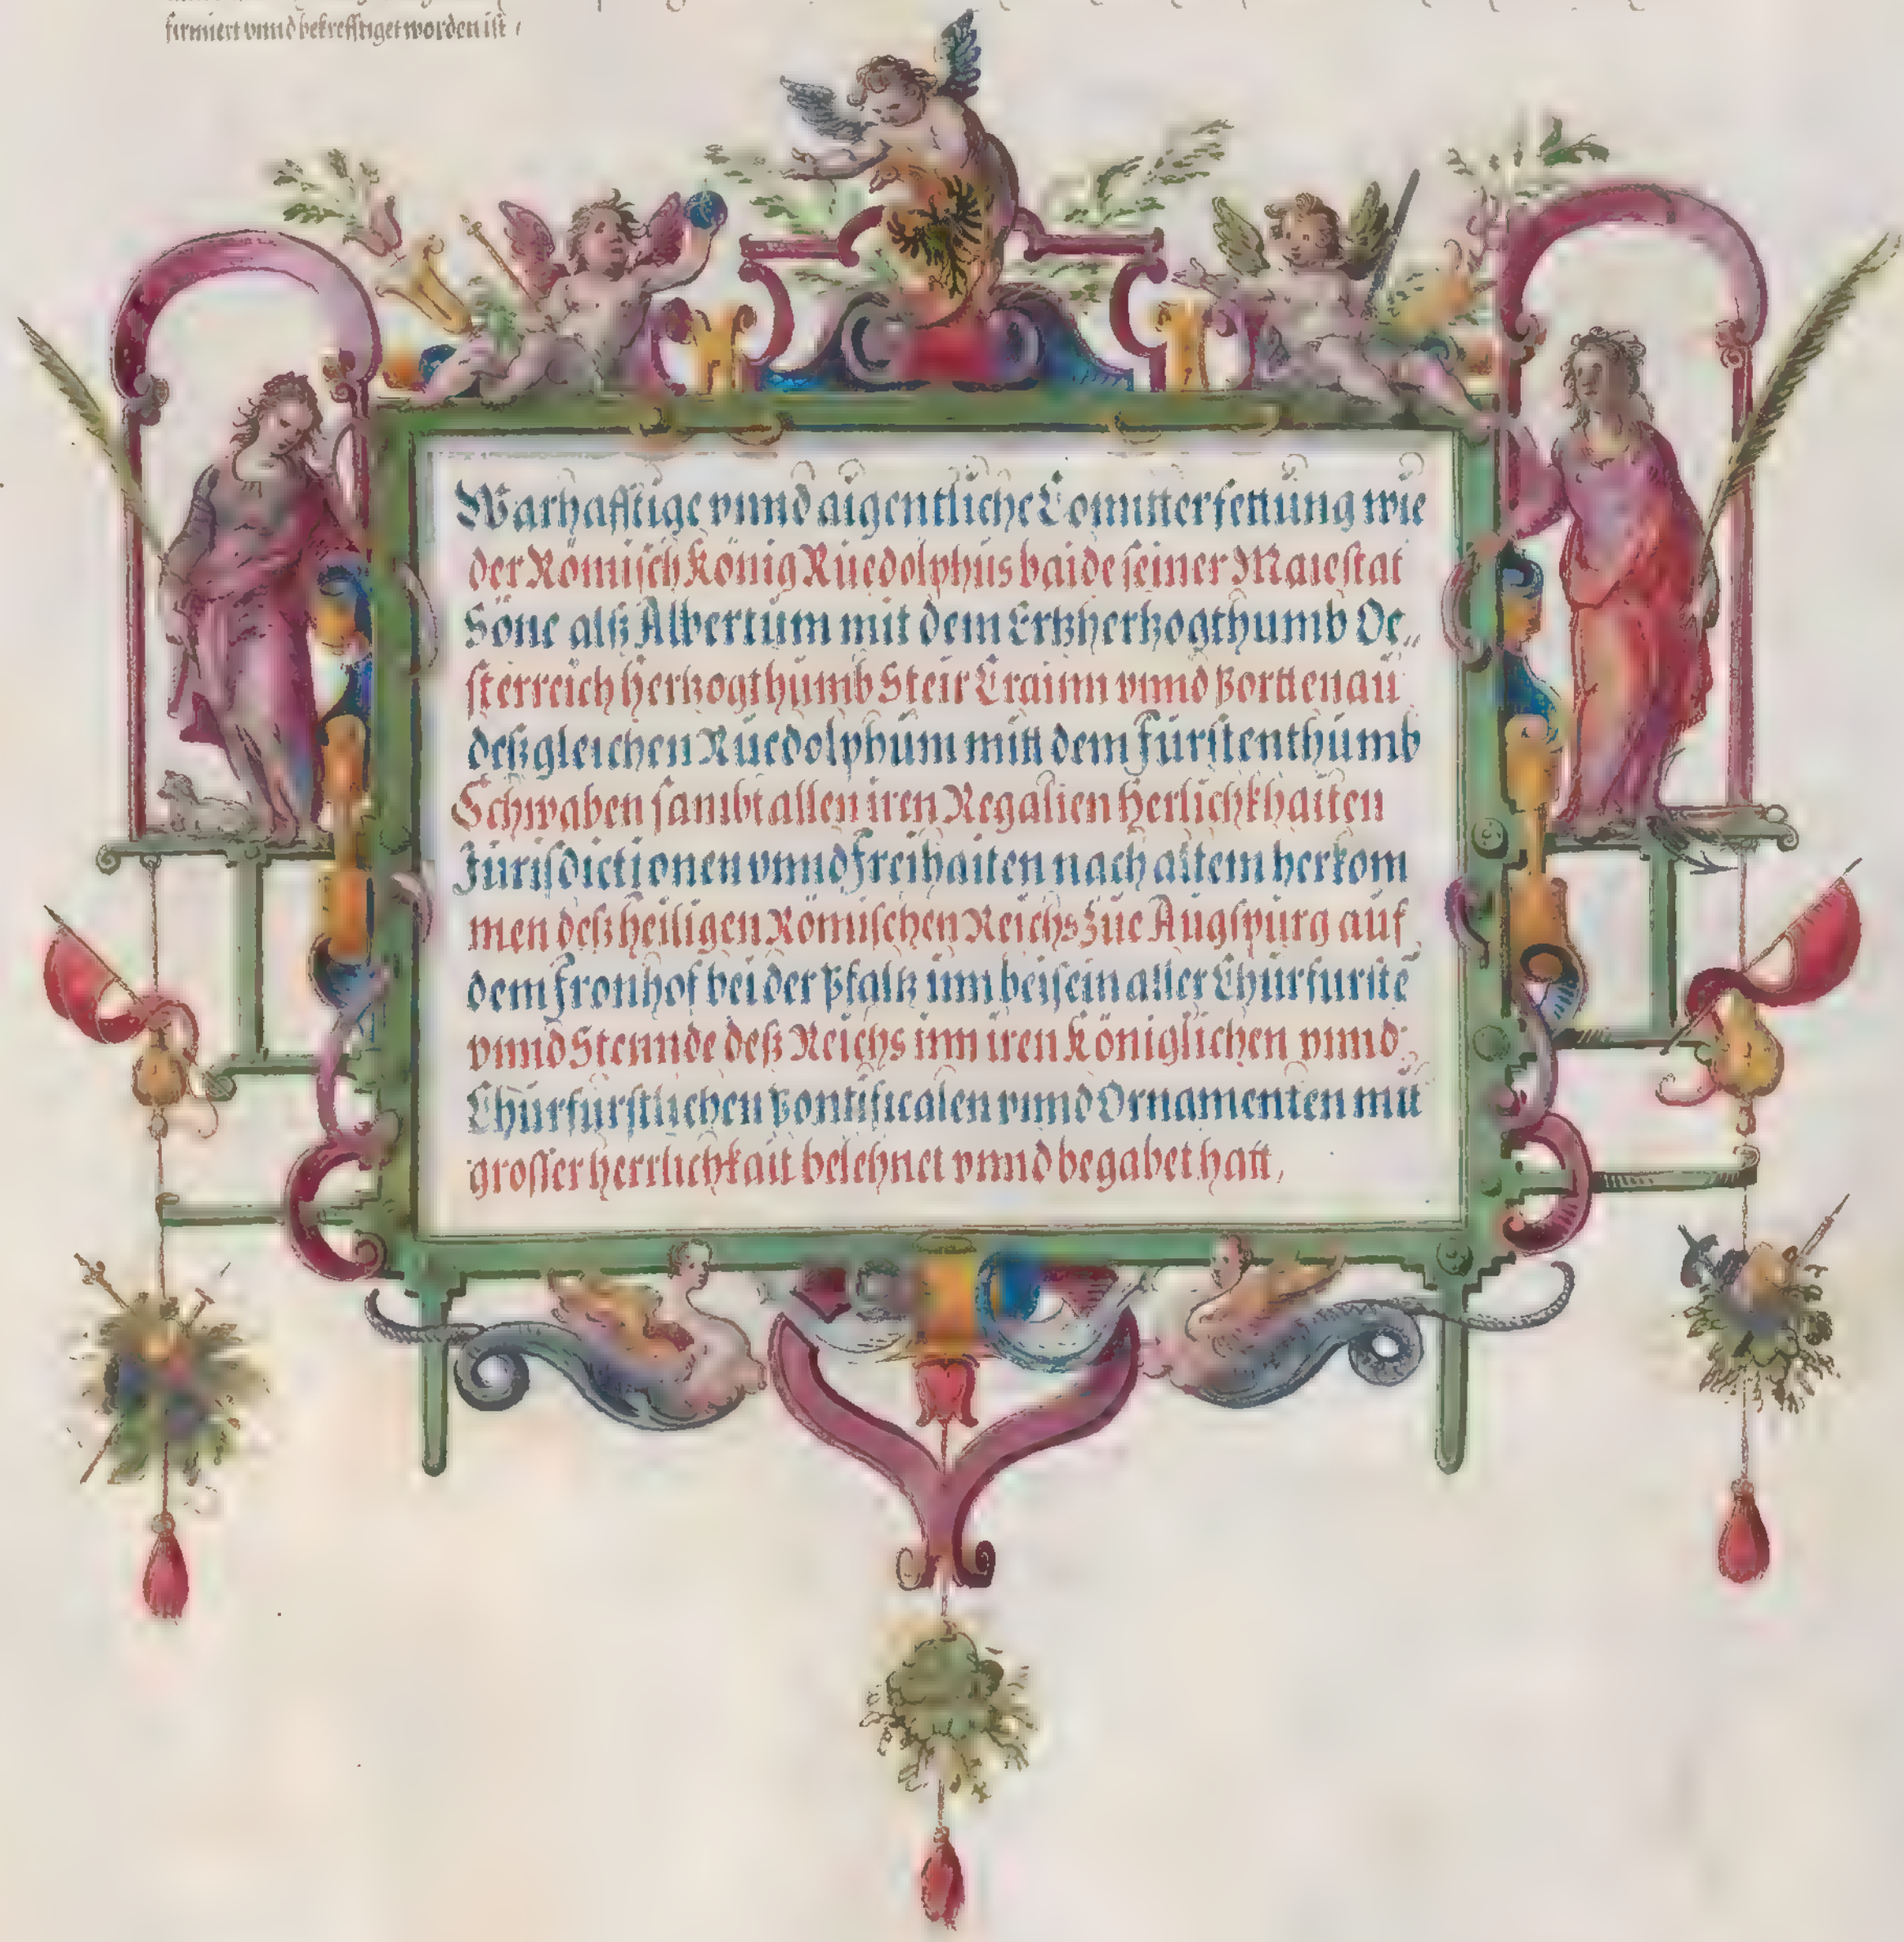 firmiert vnnd bekrefftiget worden ist /
Warhafftige vnnd aigentliche Connterfettung wie
der Römisch König Ruedolphus baide seiner Maiestat
Söne alß Albertum mit dem Ertzhertzogthumb Oe„
sterreich Hertzogthumb Steir Crainn vnnd Porttenau
deßgleichen Ruedolphum mitt dem Fürstenthumb
Schwaben sambt allen iren Regalien Herlichkhaiten
Jurisdictionen vnnd Freihaiten nach altem herkom
men deß heiligen Römischen Reichs Zue Augspurg auf
dem Fronhof bei der Pfaltz inn beisein aller Churfurstē
vnnd Stennde deß Reichs inn iren Königlichen vnnd
Churfürstlichen Pontificalen vnnd Ornamenten mit
grosser herrlichkait belehnet vnnd begabet hatt,